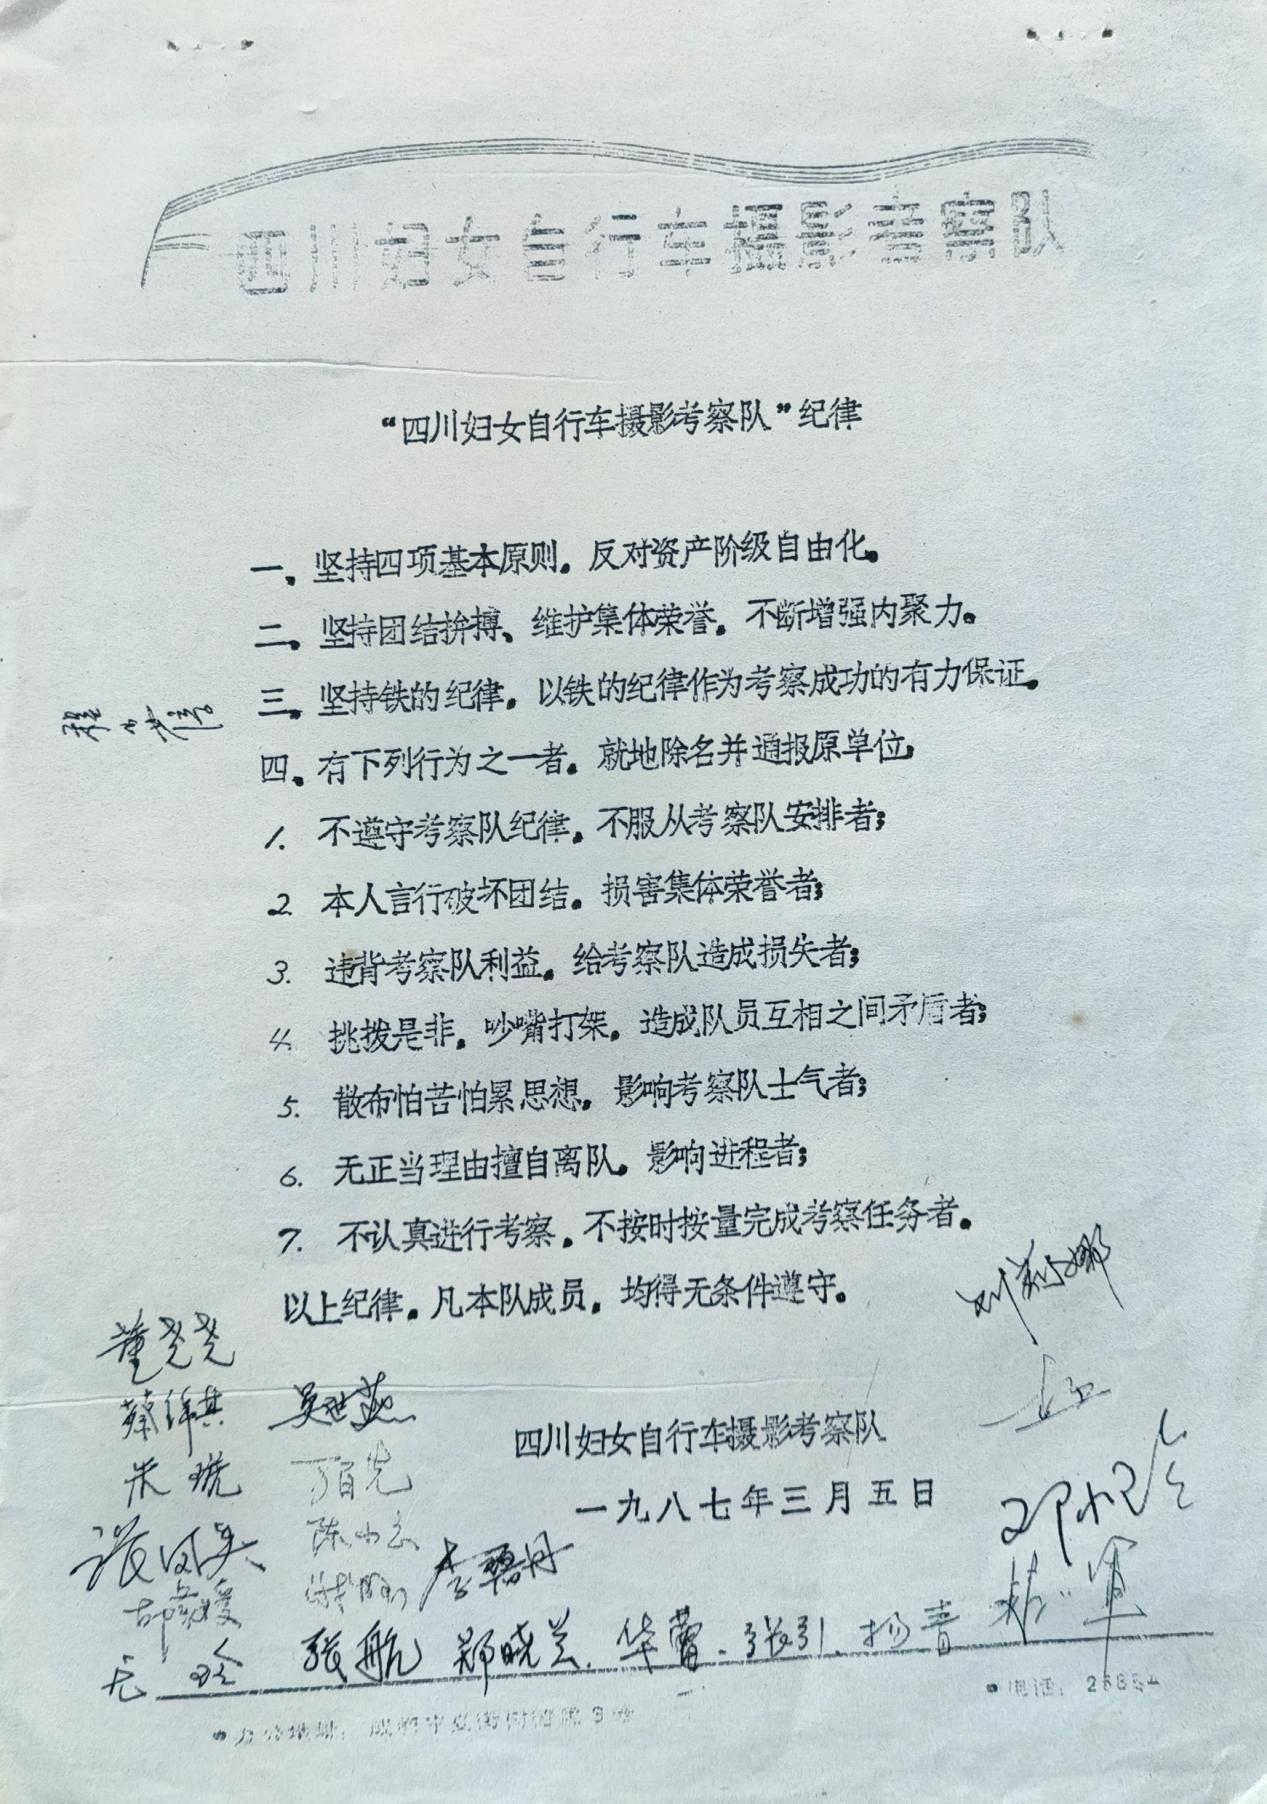 四川妇女自行车摄影考察队
“四川妇女自行车摄影考察队”纪律
一、坚持四项基本原则。反对资产阶级自由化。
二、坚持团结拚搏、维护集体荣誉。不断增强内聚力。
三、坚持铁的纪律。以铁的纪律作为考察成功的有力保证。
四、有下列行为之一者。就地除名并通报原单位，
1. 不遵守考察队纪律。不服从考察队安排者；
2. 本人言行破坏团结。损害集体荣誉者；
3. 违背考察队利益。给考察队造成损失者；
4. 挑拨是非。吵嘴打架。造成队员互相之间矛盾者；
5. 散布怕苦怕累思想。影响考察队士气者；
6. 无正当理由擅自离队。影响进程者；
7. 不认真进行考察。不按时按量完成考察任务者。
以上纪律。凡本队成员。均得无条件遵守。
四川妇女自行车摄影考察队
一九八七年三月五日
刘莉娜
董尧尧
吴世燕
朱琥
李
张航 郑晓兰. 华蕾. 张引. 扬青
电话：